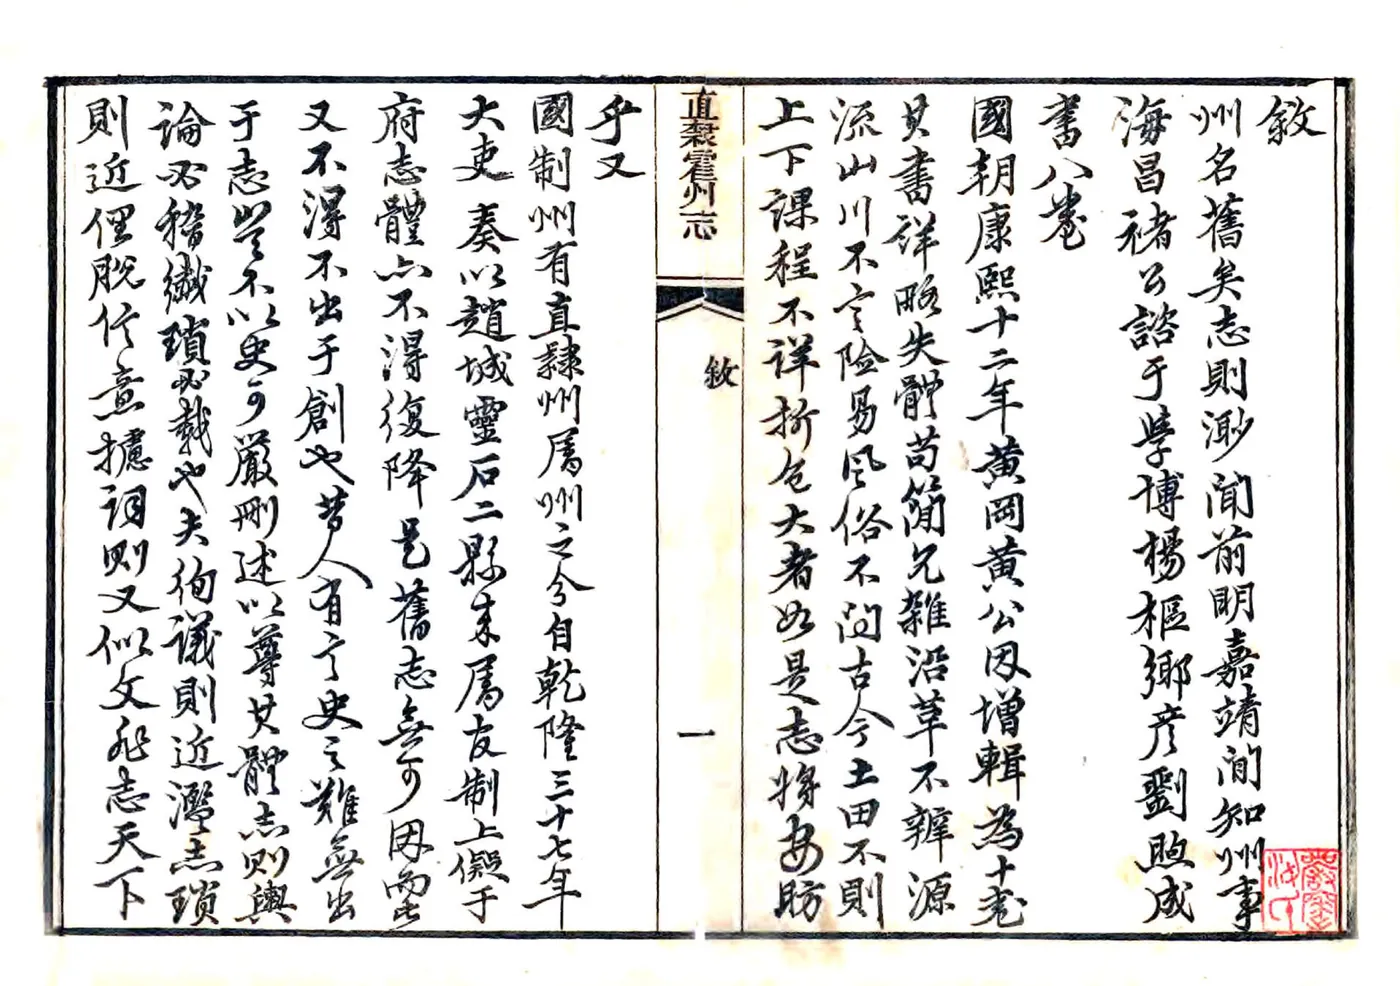 敘
州名舊矣志則渺聞前明嘉靖間知州事
海昌褚公諮于學博楊樞鄉彦劉煦成
書八卷
國朝康熙十二年黃岡黃公因增輯為十卷
其書詳略失體苟簡冗雜沿革不辨源
流山川不言險易風俗不問古今土田不則
上下課程不詳折色大者如是志將安昉
直隸霍州志
敘
一
乎又
國制州有直隸州屬州之分自乾隆三十七年
大吏奏以趙城靈石二縣來屬友制上儗于
府志體亦不得復降是舊志無可因而
又不得不出于創也昔人有言史之難無出
于志豈不以史可嚴刪述以尊其體志則輿
論必稽纖瑣必載也夫徇議則近濫志瑣
則近俚脫任意攄詞則又似文非志天下